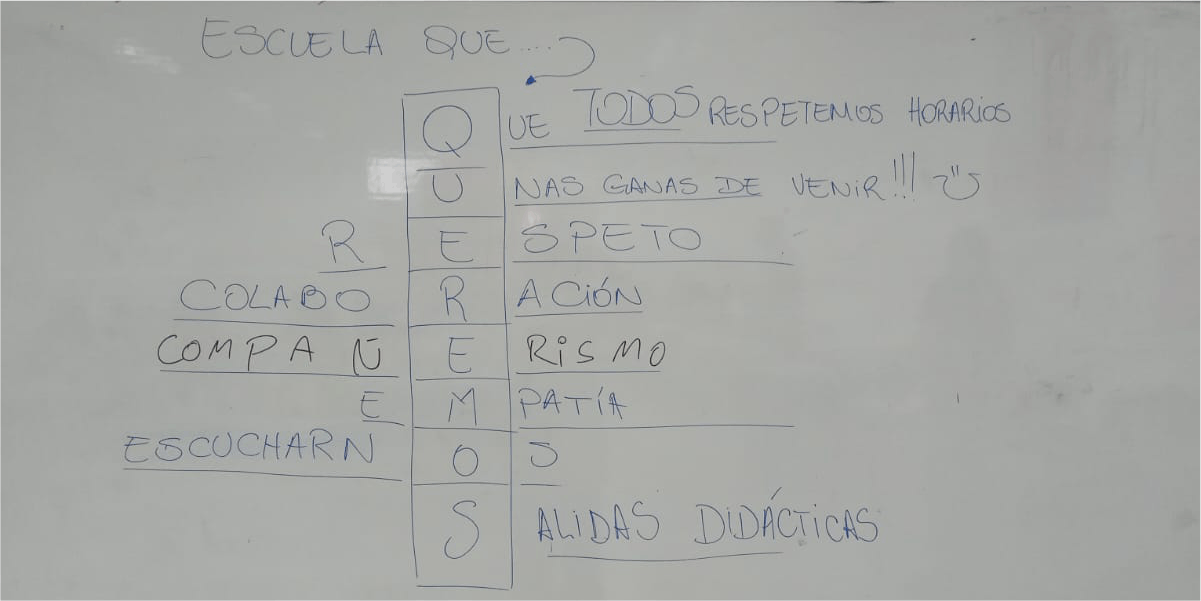 ESCUELA QUE....
QUE TODOS RESPETEMOS HORARIOS
UNAS GANAS DE VENIR!!!
RESPETO
COLABORACIÓN
COMPAÑERISMO
EMPATÍA
ESCUCHARNOS
SALIDAS DIDÁCTICAS